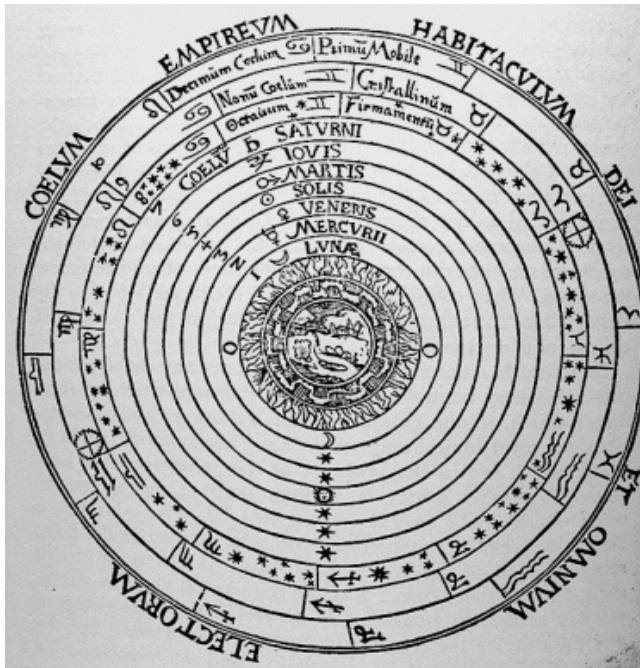 COELVM EMPIREVM HABITACVLVM DEI ET OMNIVM ELECTORVM
Decimum Coelum Primũ Mobile
Nonũ Coelũm Cristallinũm
Octauum Firmamentũ
COELV̄ SATVRNI
IOVIS
MARTIS
SOLIS
VENERIS
MERCVRII
LVNÆ
7
6
5
4
3
2
1